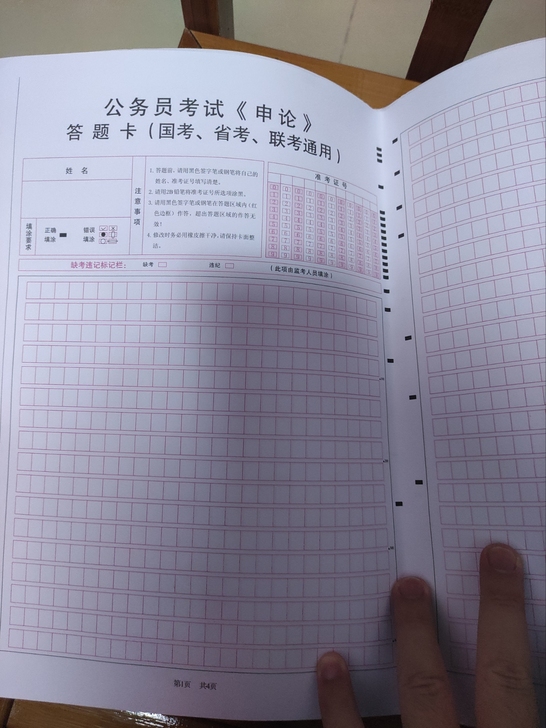 公务员考试《申论》
答题卡（国考、省考、联考通用）
姓名
填涂要求
正确填涂
错误填涂
注意事项
1. 答题前，请用黑色签字笔或钢笔将自己的
姓名、准考证号填写清楚。
2. 请用2B铅笔将准考证号所选项涂黑。
3. 请用黑色签字笔或钢笔在答题区域内（红
色边框）作答，超出答题区域的作答无
效！
4. 修改时务必用橡皮擦干净，请保持卡面整
洁。
准考证号
缺考违记标记栏：
缺考
违纪
（此项由监考人员填涂）
第1页 共4页